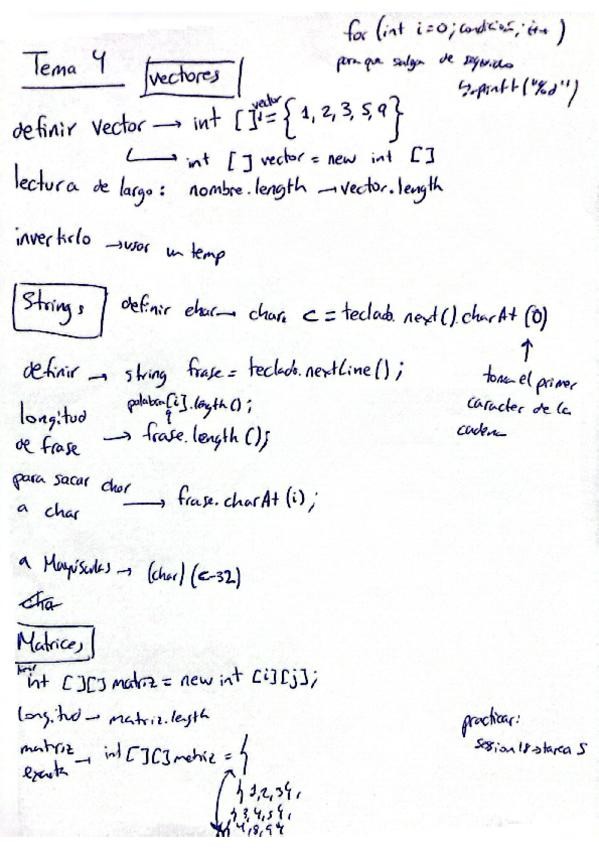 for (int i=0; condicion; i++)
para que salga de seguido
↳ printf("%d")
Tema 4
vectores
definir vector → int [] vector = {1, 2, 3, 5, 9}
↳ int [] vector = new int []
lectura de largo: nombre.length → vector.length
invertirlo → usar un temp
Strings
definir char → char c = teclado.next().charAt(0)
toma el primer
caracter de la
cadena
definir → string frase = teclado.nextLine();
palabra[i].length();
longitud
de frase → frase.length();
para sacar char
a char → frase.charAt(i);
a Mayúsculas → (char)(c-32)
cha
Matrices
int [][] matriz = new int [i][j];
longitud → matriz.length
matriz
exacta → int [][] matriz = {
{1,2,3},
{3,4,5},
4,8,9}
practicar:
sesion 18 → tarea 5